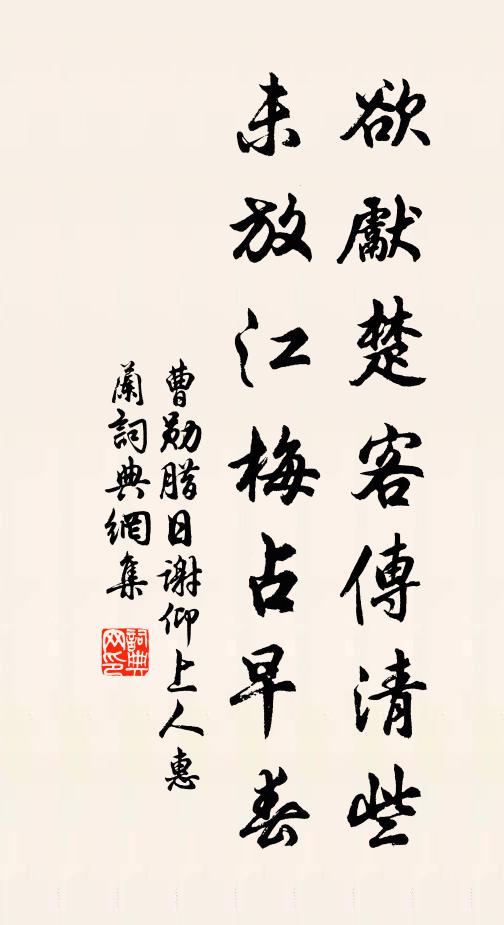 欲獻楚客傳清些
未放江梅占早春
曹勛腊日謝仰上人惠
蘭詞典網集
詞典网印